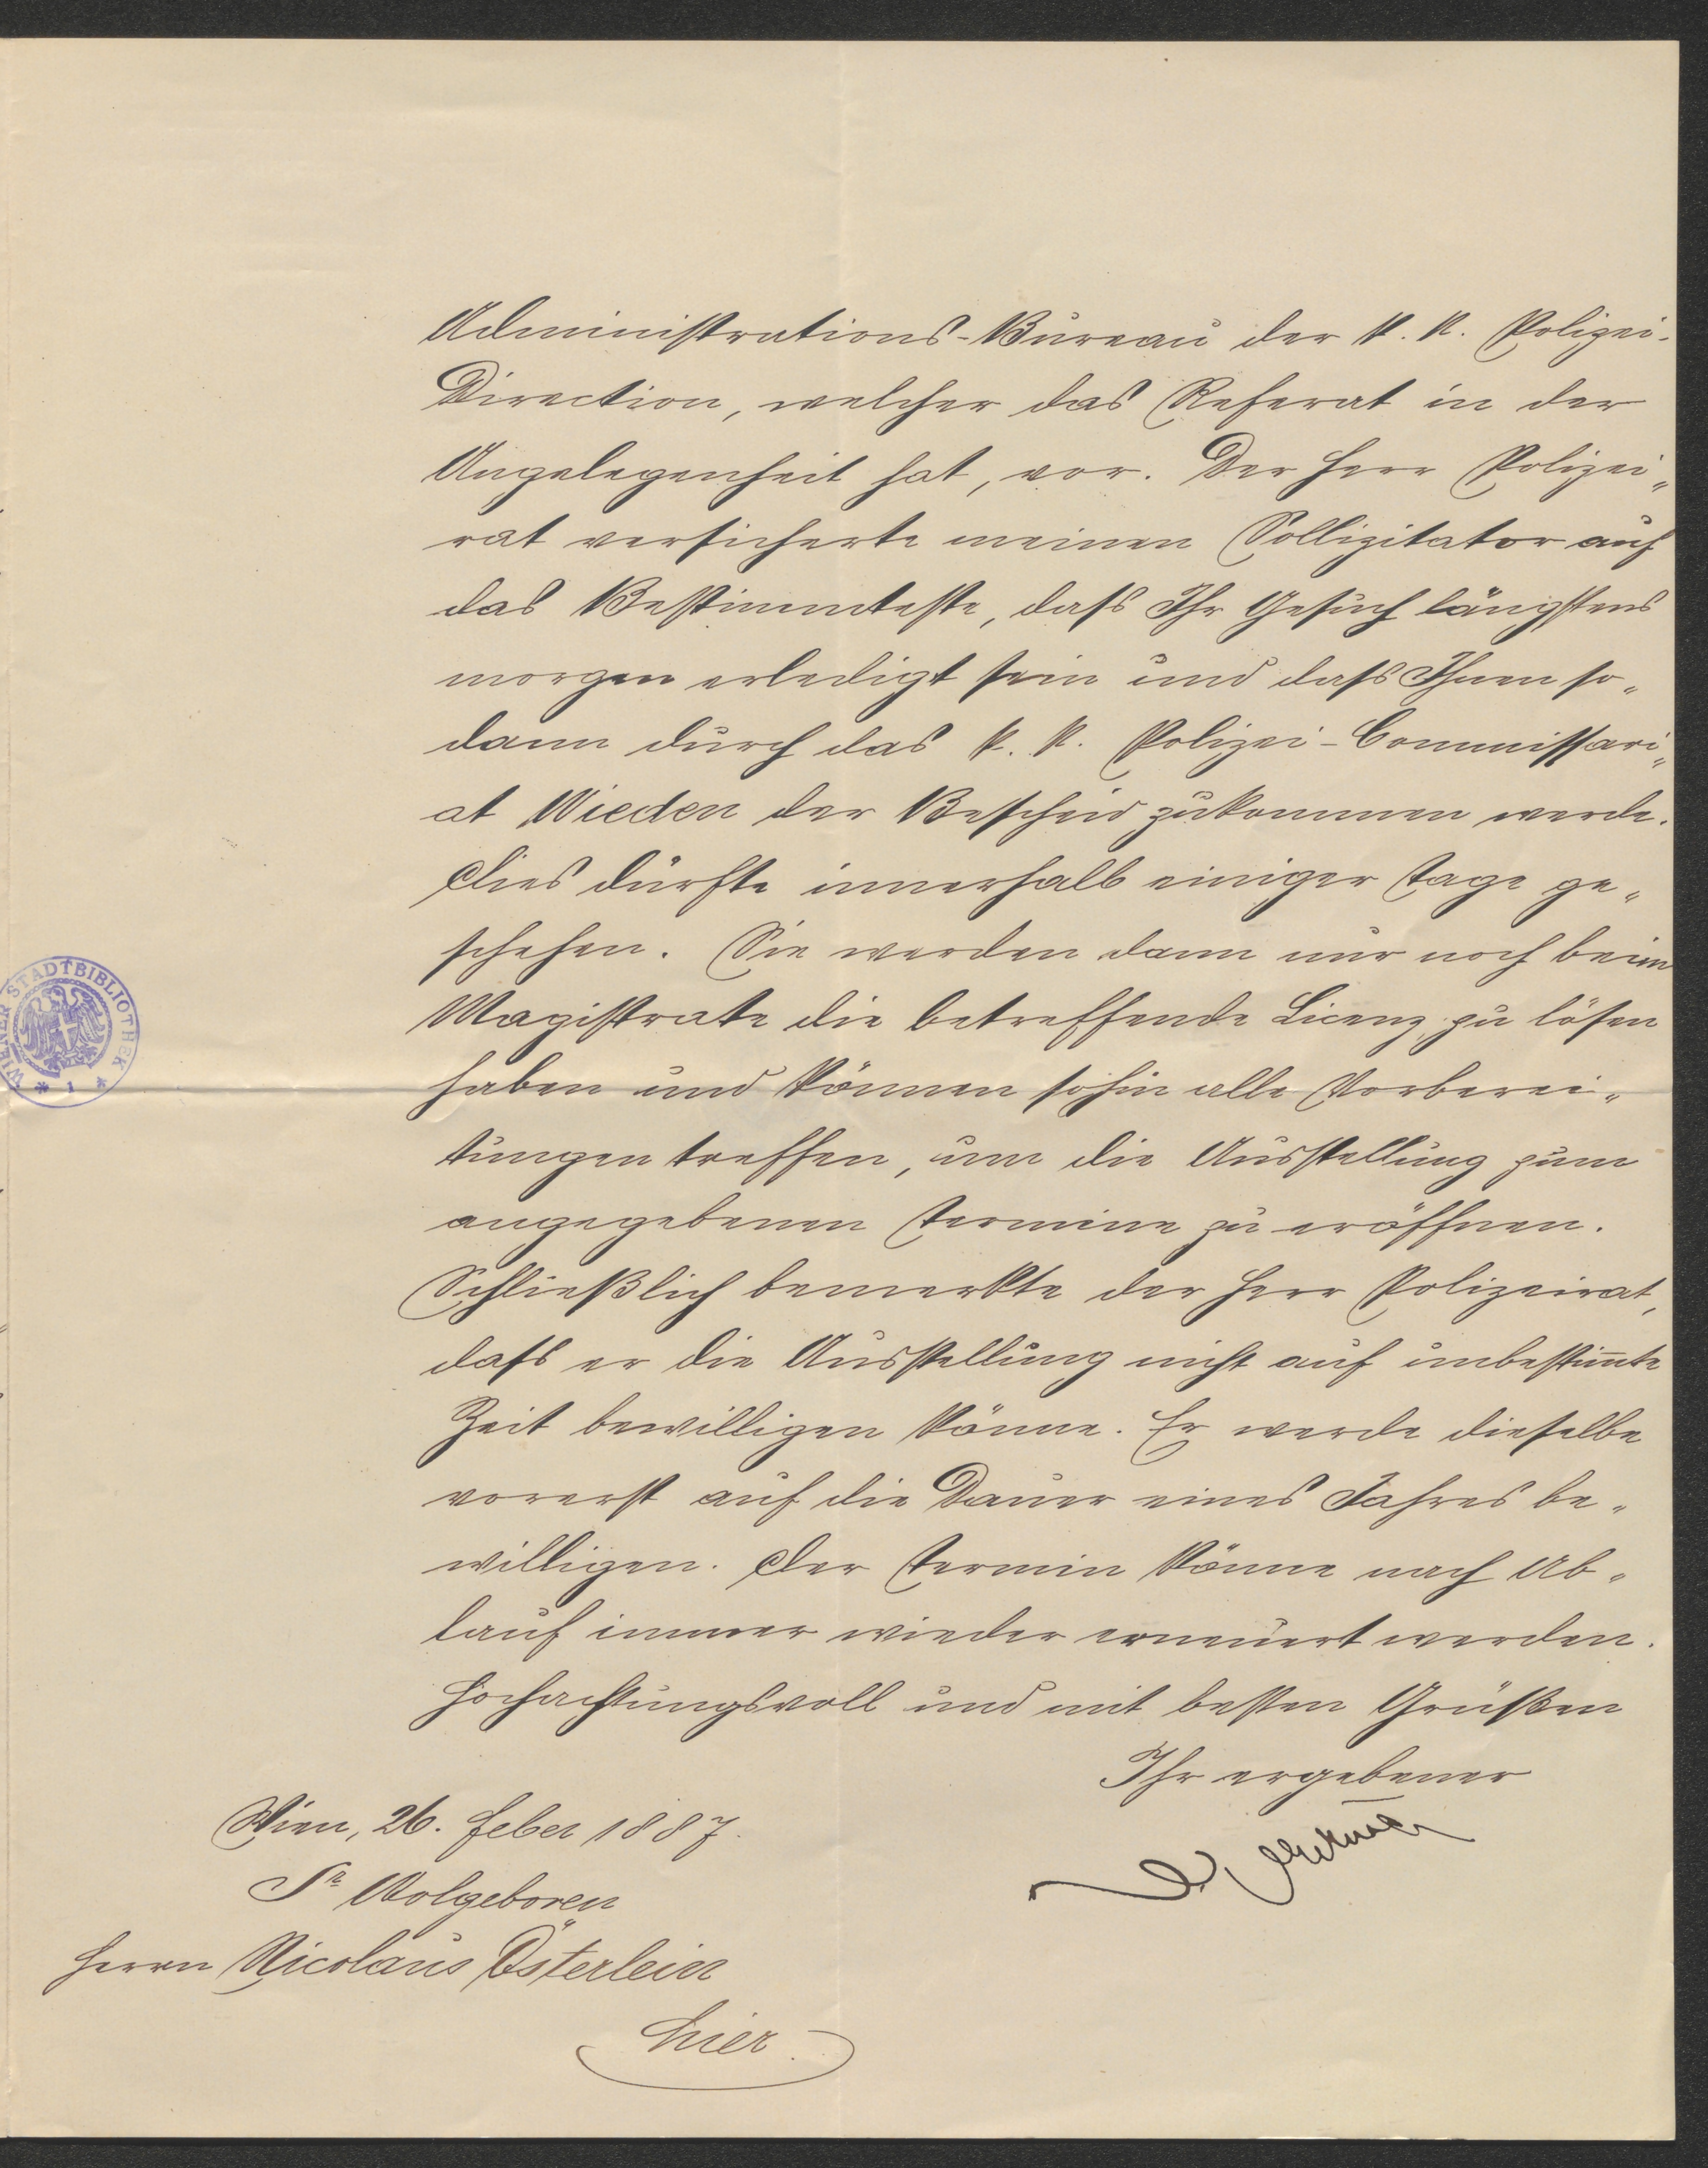 Administrations-Bureau der k. k. Polizei-
Direction, welcher das Referat in der
Angelegenheit hat, vor. Der Herr Polizei„
rat versicherte meinen Sollizitator auf
das Bestimmteste, dass Ihr Gesuch längstens
morgen erledigt sein und dass Ihnen so„
dann durch das k. k. Polizei-Commissari„
at Wieden der Bescheid zukommen werde.
Dies dürfte innerhalb einiger Tage ge„
schehen. Sie werden dann nur noch beim
Magistrate die betreffende Licenz zu lösen
haben und können sohin alle Vorberei„
tungen treffen, um die Ausstellung zum
angegebenen Termine zu eröffnen.
Schließlich bemerkte der Herr Polizeirat,
dass er die Ausstellung nicht auf unbestim̄te
Zeit bewilligen könne. Er werde dieselbe
vorerst auf die Dauer eines Jahres be„
willigen. Der Termin könne nach Ab„
lauf immer wieder erneuert werden.
Hochachtungsvoll und mit besten Grüßen
Ihr ergebener
Wien, 26. Feber 1887.
Sr Wolgeboren
Herrn Nicolaus Österlein
hier.
WIENER STADTBIBLIOTHEK
* 1 *